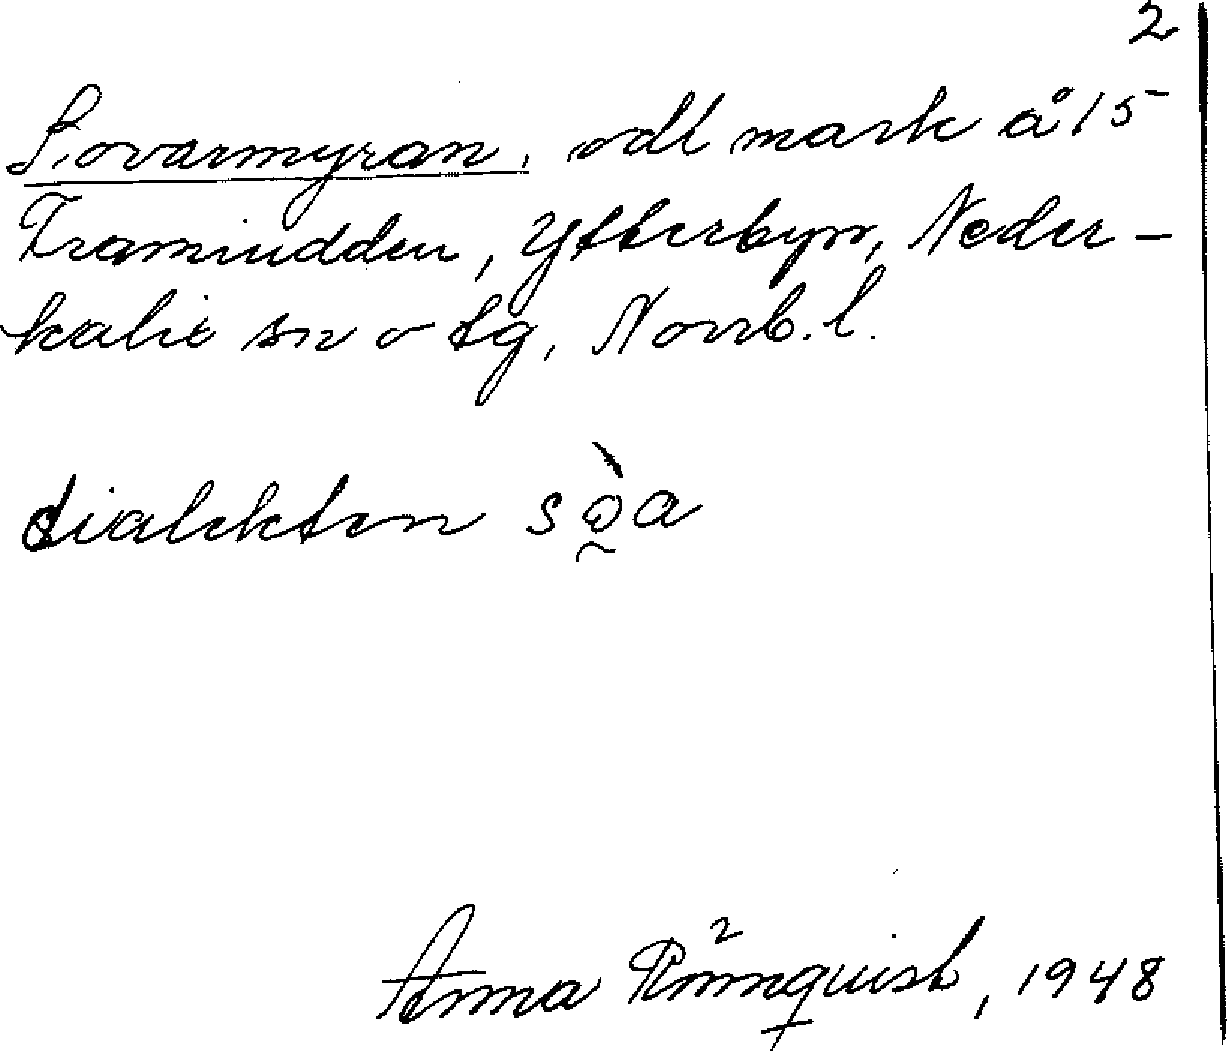 2
Sovarmyran, odl mark å 15
Framiudden, Ytterbyn, Neder-
kalix sn o tg, Norrb. l.
dialekten sòa
Anna Rönnquist, 1948